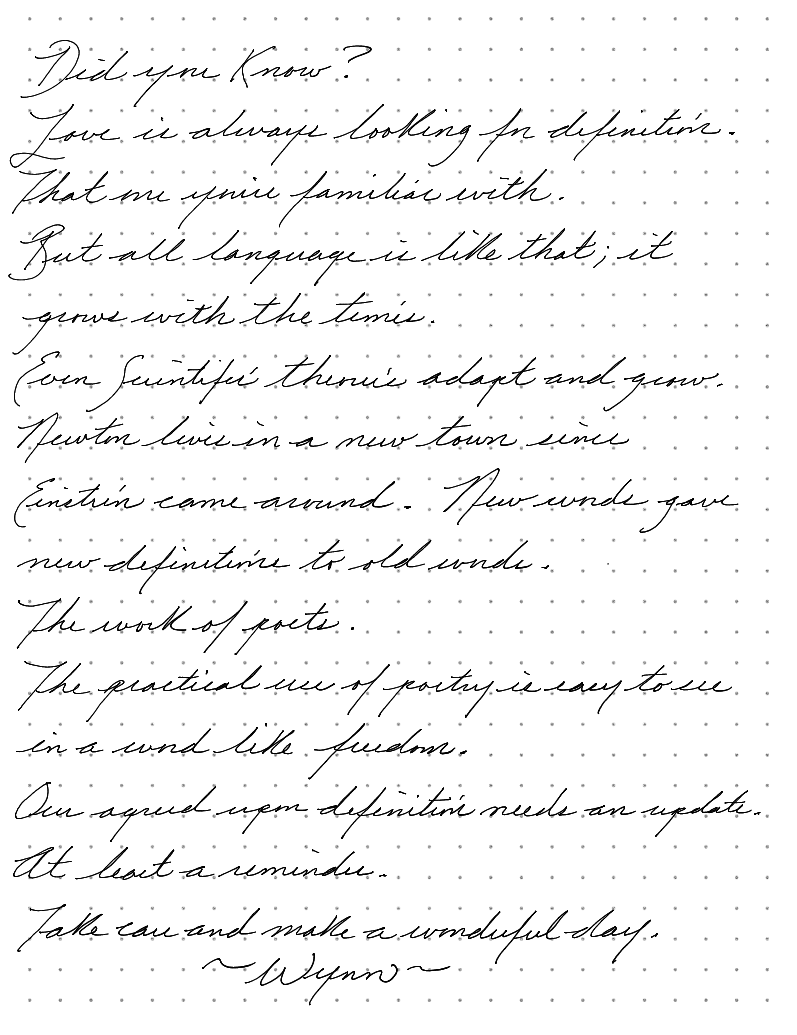 Did you Know?
Love is always looking for definition.
That one you're familiar with.
But all language is like that; it
grows with the times.
Even Scientific theories adapt and grow.
Newton lives in a new town since
Einstein came around. New words gave
new definitions to old words.
The work of poets.
The practical use of poetry is easy to see
in a word like freedom.
Our agreed upon definition needs an update.
At least a reminder.
Take care and make a wonderful day.
~Wynn~